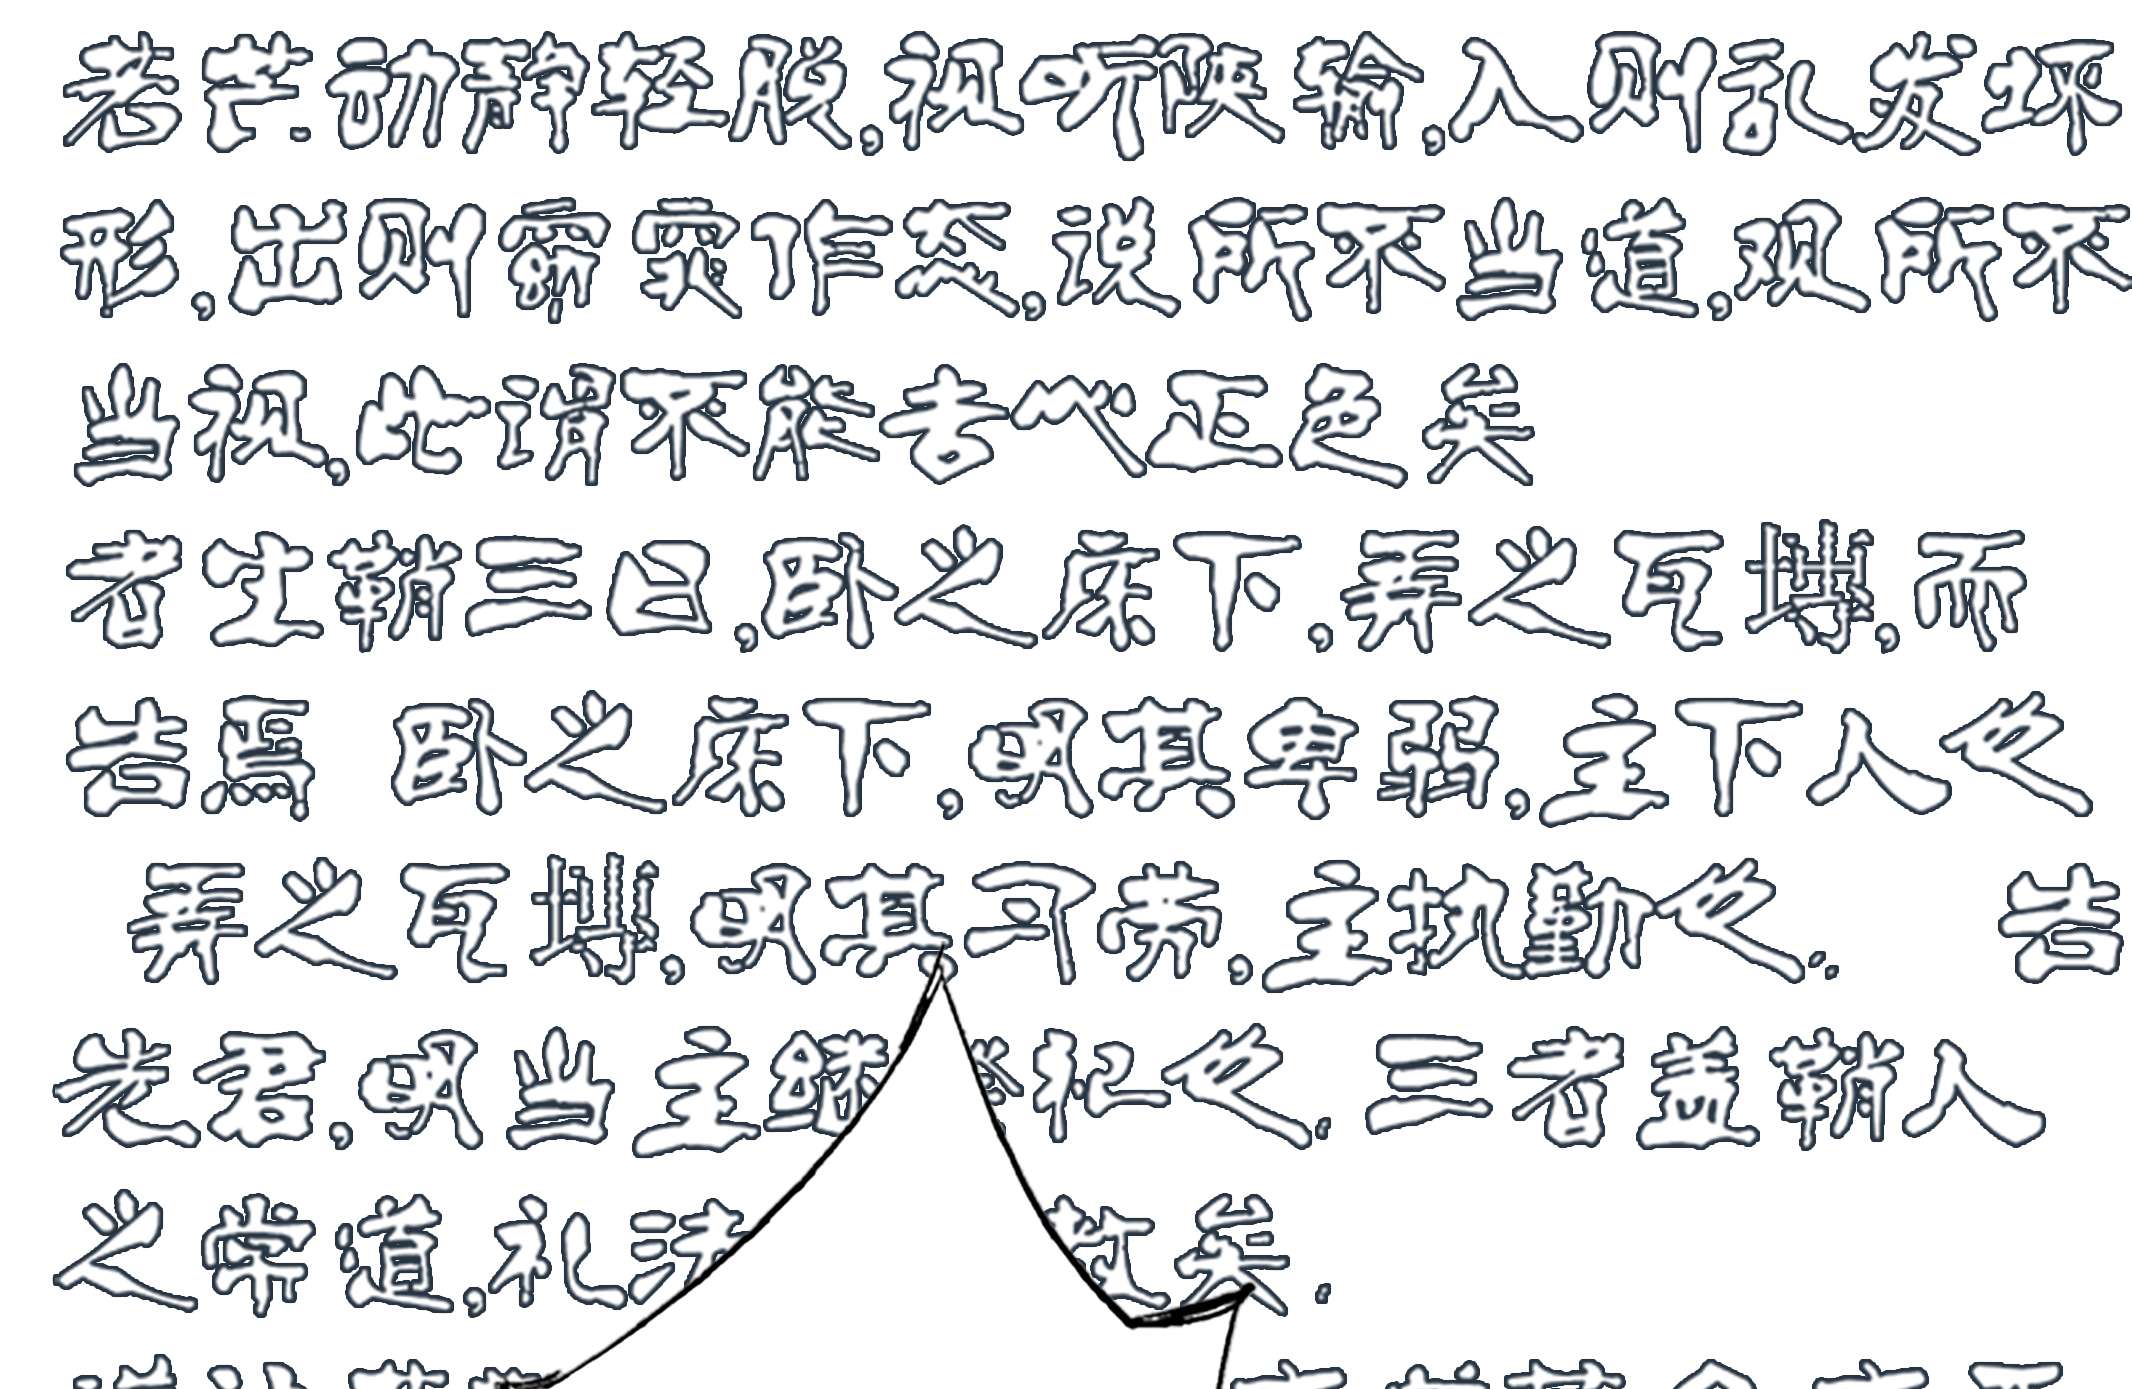 若芒.动静轻脱,视听陕输,入则乱发坏
形,出则窈窕作态,说所不当道,观所不
当视,此谓不能去心正色矣
者生鞘三日,卧之床下,弄之瓦塼,而
告焉 卧之床下,明其卑弱,主下人也
弄之瓦塼,明其习劳,主执勤也.. 告
先君,明当主继祭祀也.三者盖鞘人
之常道,礼法 教矣.